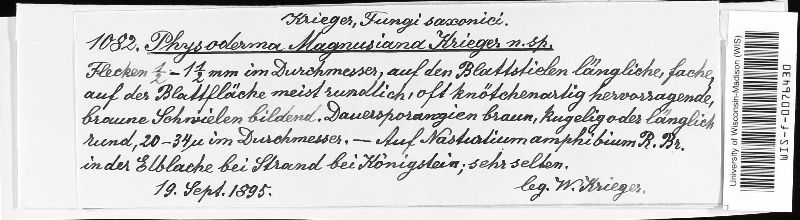 Krieger, Fungi saxonici.
1082. Physoderma Magnusiana Krieger n. sp.
Flecken ½ - 1½ mm im Durchmesser, auf den Blattstielen längliche, fache,
auf der Blattfläche meist rundlich, oft knötchenartig hervorragende,
braune Schwielen bildend. Dauersporangien braun, kugelig oder länglich
rund, 20-34µ im Durchmesser. — Auf Nasturtium amphibium R. Br.
in der Elblache bei Strand bei Königstein; sehr selten.
19. Sept. 1895.
leg. W. Krieger.
University of Wisconsin-Madison (WIS)
WIS-f-0076430